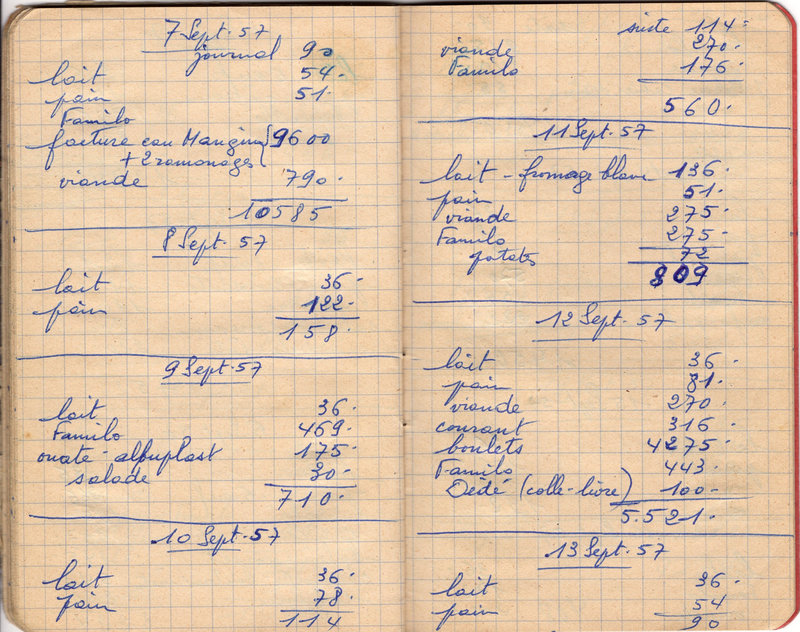 7 Sept. 57
journal 90
lait 54.
pain 51.
Familo
facture eau Mangin 9600
+ 2 ramonages
viande 790.
10585
8 Sept. 57
lait 36.
pain 122.
158.
9 Sept. 57
lait 36.
Familo 469.
ouate - albuplast 175.
salade 30.
710.
10 Sept. 57
lait 36.
pain 78.
114
suite 114.
viande 270.
Familo 176.
560.
11 Sept. 57
lait - fromage blanc 136.
pain 51.
viande 275.
Familo 275.
patates 72
809
12 Sept. 57
lait 36.
pain 81.
viande 270.
courant 316.
boulets 4275.
Familo 443.
Dédé (colle-livre) 100-
5.521.
13 Sept. 57
lait 36.
pain 54
90